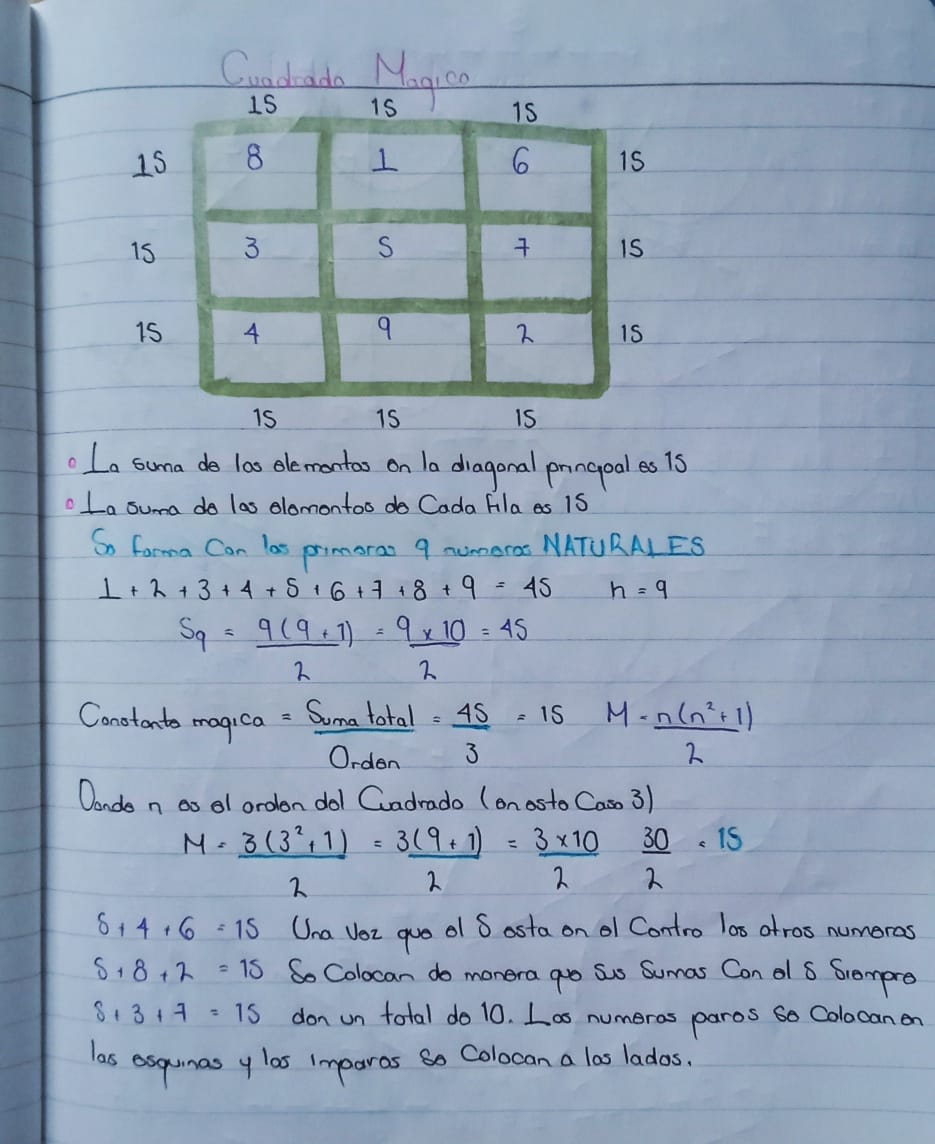 Cuadrado Magico
15 15 15
15 8 1 6 15
15 3 5 7 15
15 4 9 2 15
15 15 15
La suma de los elementos en la diagonal principal es 15
La suma de los elementos de Cada fila es 15
Se forma Con los primeros 9 numeros NATURALES
1 + 2 + 3 + 4 + 5 + 6 + 7 + 8 + 9 = 45 n = 9
S9 = 9(9+1)/2 = 9 x 10/2 = 45
Constante magica = Suma total/Orden = 45/3 = 15 M = n(n²+1)/2
Donde n es el orden del Cuadrado (en este Caso 3)
M = 3(3²+1)/2 = 3(9+1)/2 = 3 x 10/2 30/2 = 15
5 + 4 + 6 = 15 Una vez que el 5 esta en el Centro los otros numeros
5 + 8 + 2 = 15 Se Colocan de manera que sus Sumas Con el 5 Siempre
5 + 3 + 7 = 15 den un total de 10. Los numeros pares se Colocan en
las esquinas y los impares se Colocan a los lados.